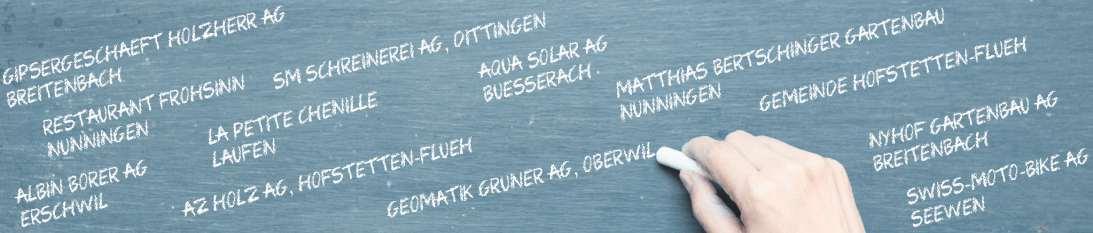 GIPSERGESCHAEFT HOLZHERR AG
BREITENBACH
RESTAURANT FROHSINN
NUNNINGEN
ALBIN BORER AG
ERSCHWIL
SM SCHREINEREI AG, OITTINGEN
LA PETITE CHENILLE
LAUFEN
AZ HOLZ AG, HOFSTETTEN-FLUEH
AQUA SOLAR AG
BUESSERACH
GEOMATIK GRUNER AG, OBERWIL
MATTHIAS BERTSCHINGER GARTENBAU
NUNNINGEN
GEMEINDE HOFSTETTEN-FLUEH
NYHOF GARTENBAU AG
BREITENBACH
SWISS-MOTO-BIKE AG
SEEWEN